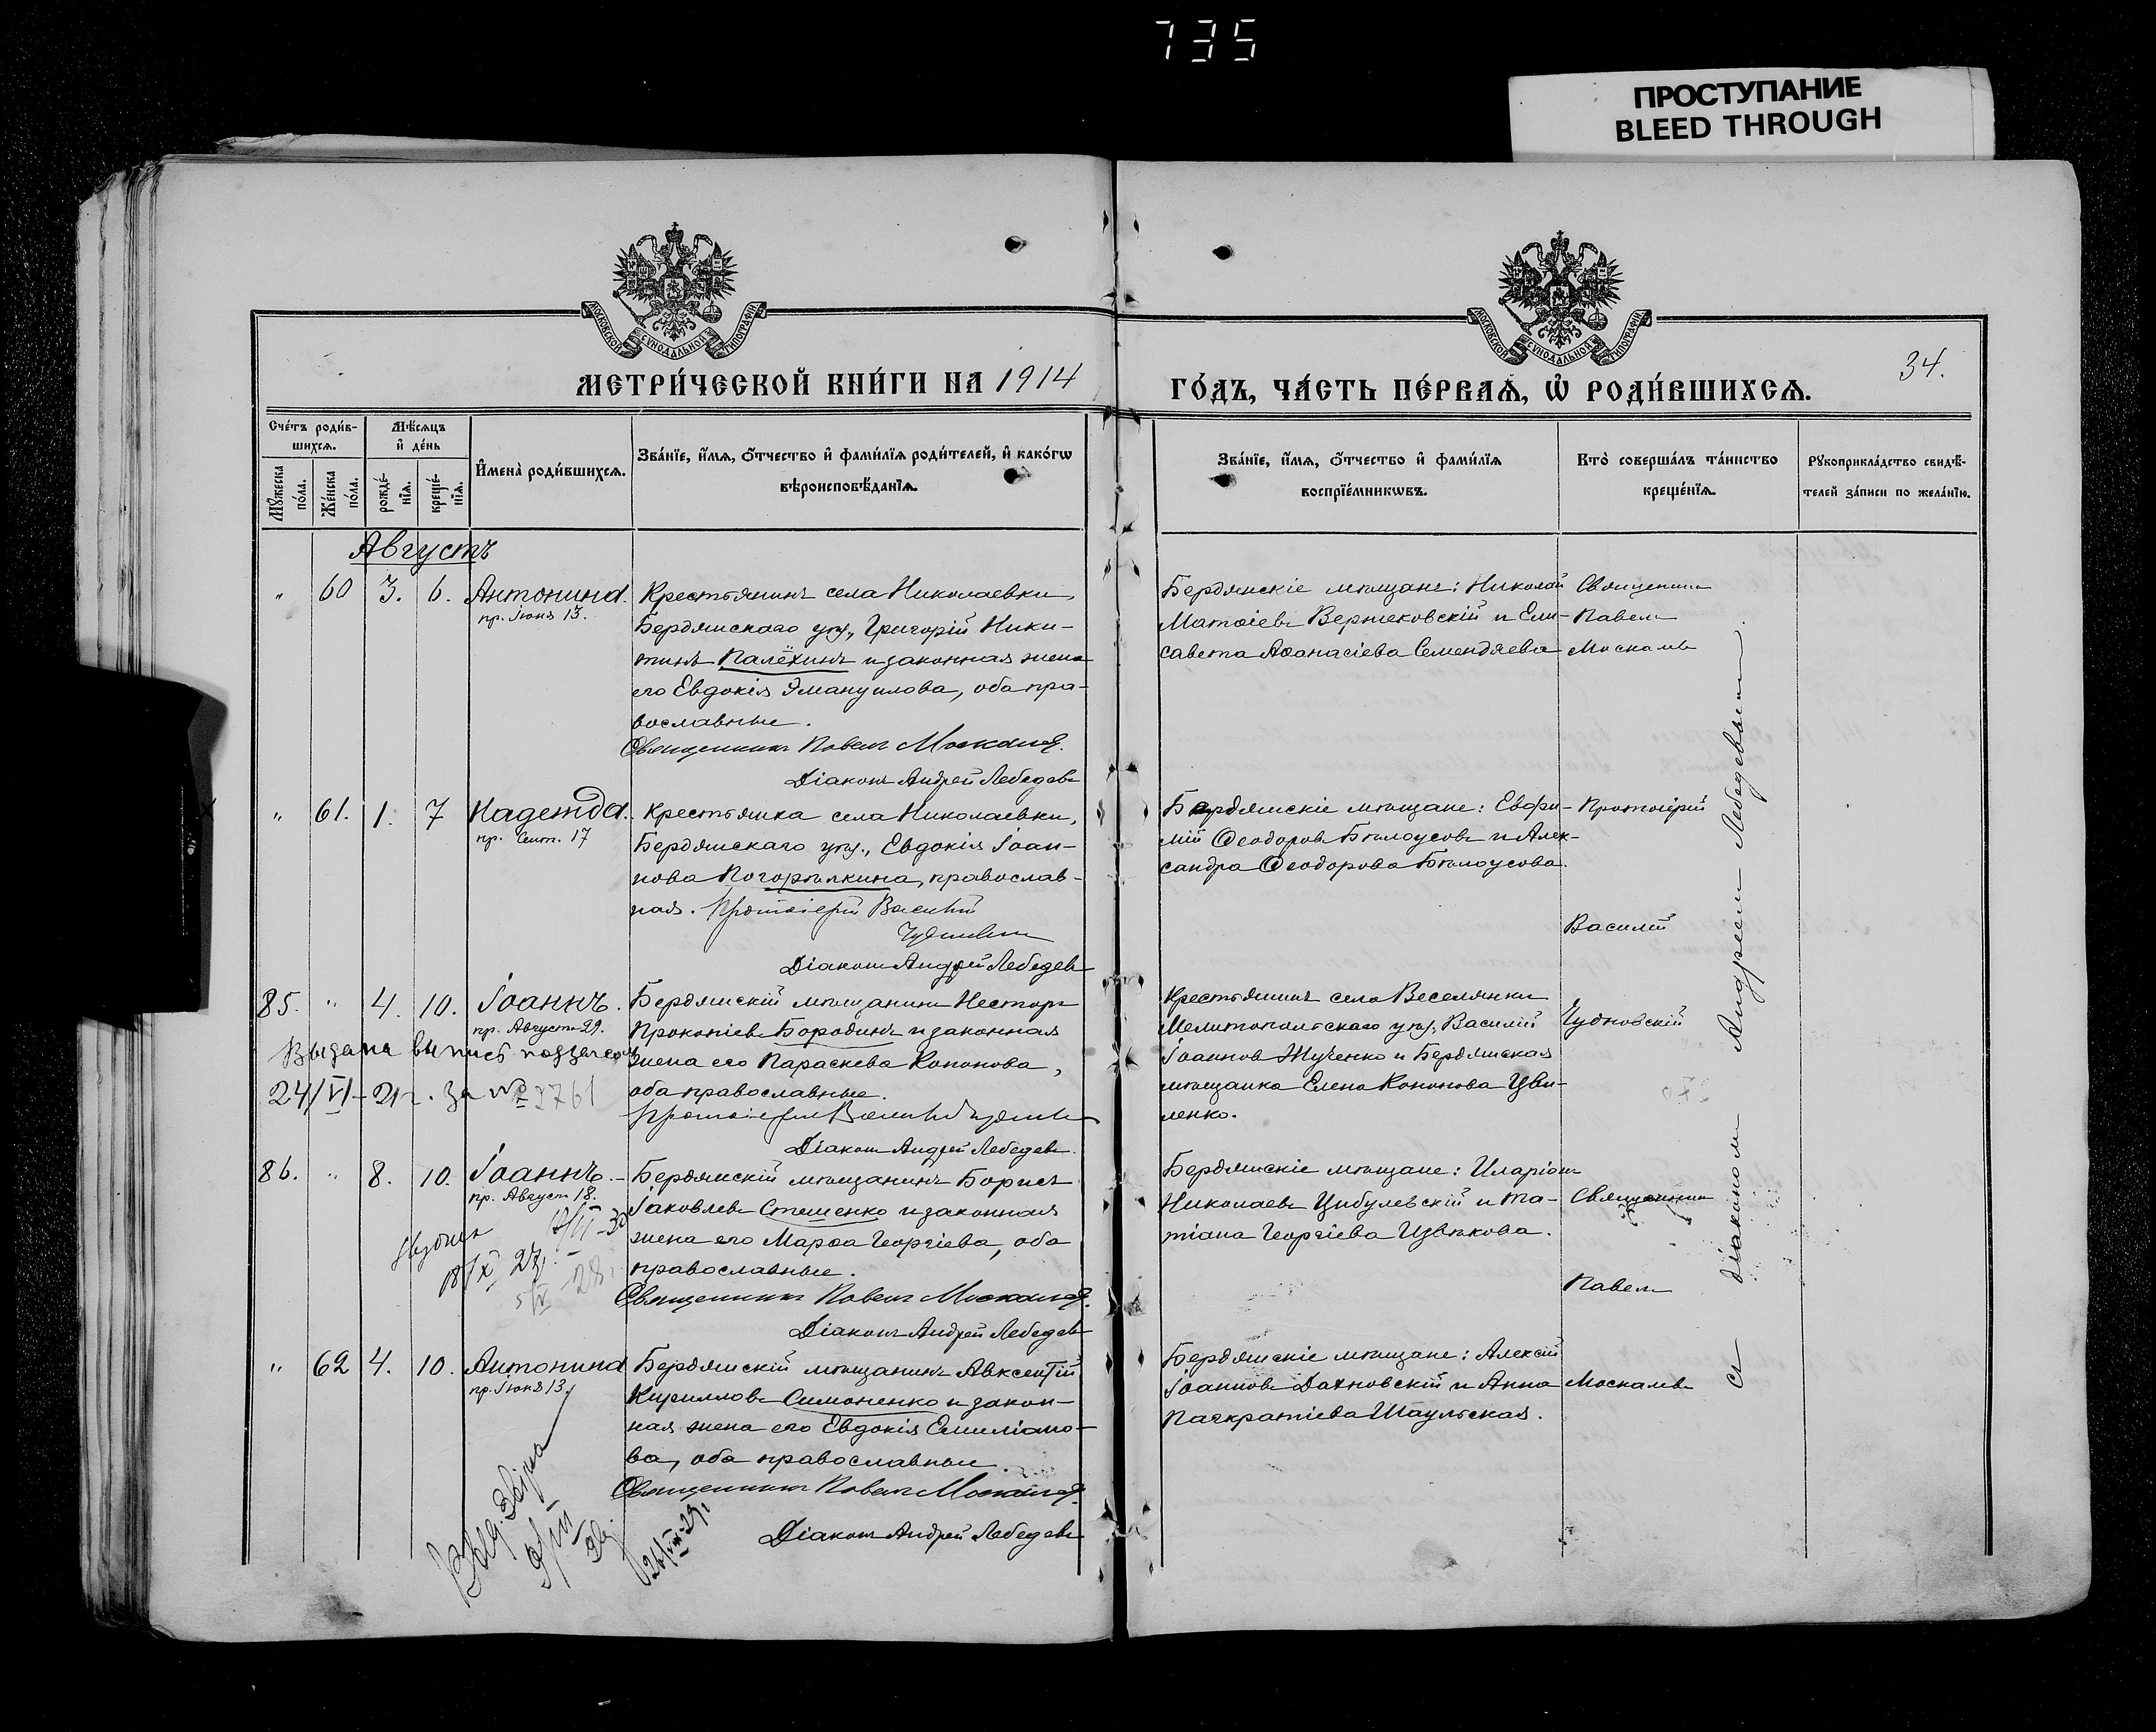 735
ПРОСТУПАНИЕ
BLEED THROUGH
МОСКОВСКОЙ СѴНОДАЛЬНОЙ ТИПОГРАФІИ
МОСКОВСКОЙ СѴНОДАЛЬНОЙ ТИПОГРАФІИ
МЕТРИ́ЧЕСКОЙ КНИ́ГИ НА 1914
ГО́ДЪ, ЧА́СТЬ ПЕ́РВАѦ, Ѡ РОДИ́ВШИХСѦ.
34.
Сче́тъ роди́в-
шихсѧ.
Мѣ́сѧцъ
и҆ де́нь
Мꙋ́жеска
по́ла.
Же́нска
по́ла.
рожде́-
нїѧ.
креще́-
нїѧ.
И҆мена̀ роди́вшихсѧ.
Зва́нїе, и҆́мѧ, ѻ҆́тчество и҆ фами́лїѧ роди́телей, и҆ како́гѡ
вѣроисповѣ́данїѧ.
Зва́нїе, и҆́мѧ, ѻ҆́тчество и҆ фами́лїѧ
воспрїе́мникѡвъ.
Кто̀ соверша́лъ та́инство
креще́нїѧ.
Рꙋкоприкла́дство свидѣ́-
телей за́писи по жела́нїю.
Августъ
" 60 3. 6. Антонина.
пр. Іюня 13.
Крестьянинъ села Николаевки,
Бердянскаго уѣз., Григорій Ники-
тинъ Палёхинъ и законная жена
его Евдокія Эмануилова, оба пра-
вославные.
Священникъ Павелъ Москалевъ.
Діаконъ Андрей Лебедевъ
Бердянскіе мѣщане: Николай
Матѳіевъ Вержековскій и Ели-
савета Аѳанасіева Семендяева
Священникъ
Павелъ
Москалевъ
" 61. 1. 7 Надежда.
пр. Сент. 17
Крестьянка села Николаевки,
Бердянскаго уѣз., Евдокія Іоан-
нова Погорѣлкина, православ-
ная. Протоіерей Василій
Чудновскій
Діаконъ Андрей Лебедевъ
Бердянскіе мѣщане: Евфи-
мій Ѳеодоровъ Бѣлоусовъ и Алек-
сандра Ѳеодорова Бѣлоусова.
Протоіерей
Василій
Чудновскій
85. " 4. 10. Іоаннъ.
пр. Августа 29.
Выдана выпись
24/VI-21г. за № 3761
Бердянскій мѣщанинъ Несторъ
Прокопіевъ Бородинъ и законная
жена его Параскева Кононова,
оба православные.
Протоіерей Василій Чудновскій
Діаконъ Андрей Лебедевъ.
Крестьянинъ села Веселянки
Мелитопольскаго уѣз. Василій
Іоанновъ Жученко и Бердянская
мѣщанка Елена Кононова Цви-
ленко.
86. " 8. 10. Іоаннъ.
пр. Август. 18.
Бердянскій мѣщанинъ Борисъ
Іаковлевъ Стешенко и законная
жена его Марѳа Георгіева, оба
православные.
Священникъ Павелъ Москалевъ.
Діаконъ Андрей Лебедевъ
Бердянскіе мѣщане: Иларіонъ
Николаевъ Цибулевскій и Та-
тіана Георгіева Цвѣткова.
Священникъ
Павелъ
Москалевъ
" 62 4. 10. Антонина
пр. Іюня 13.
Бердянскій мѣщанинъ Авксентій
Кирилловъ Симоненко и закон-
ная жена его Евдокія Емиліано-
ва, оба православные.
Священникъ Павелъ Москалевъ.
Діаконъ Андрей Лебедевъ
Бердянскіе мѣщане: Алексій
Іоанновъ Дахновскій и Анна
Панкратіева Шаульская.
Съ діакономъ Андреемъ Лебедевымъ.